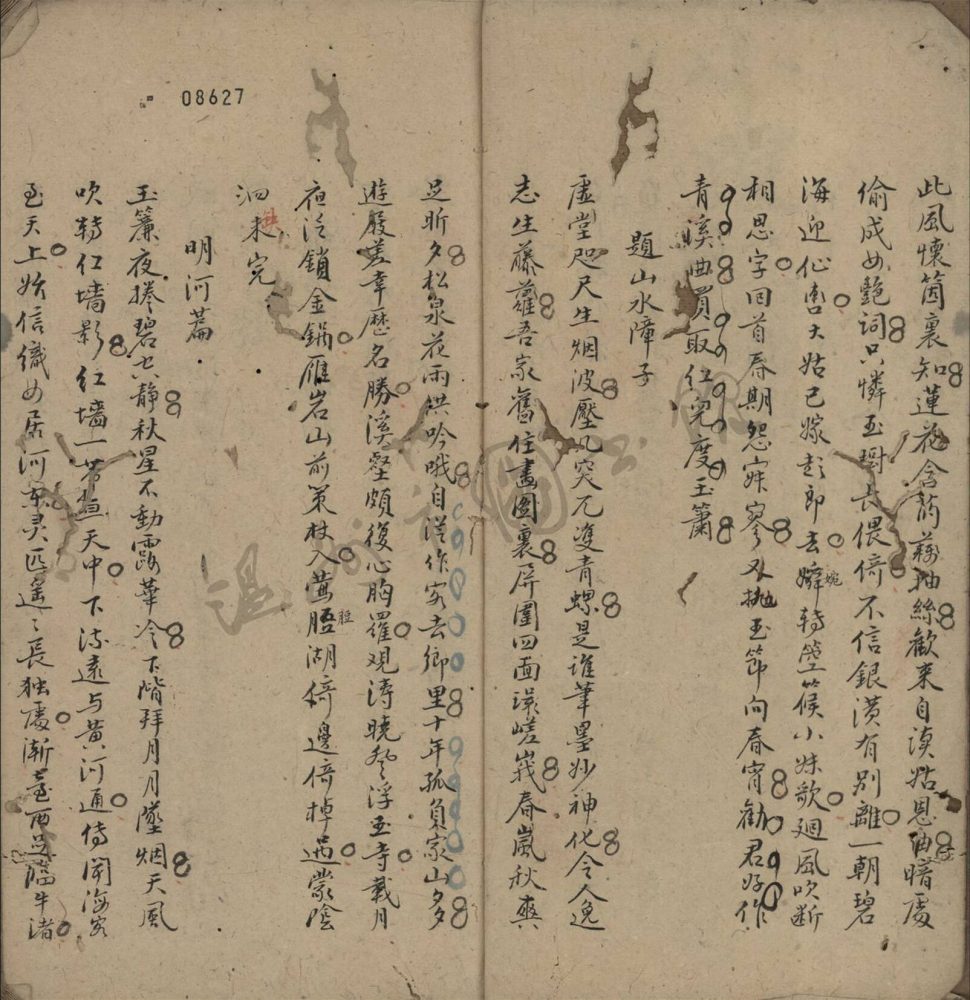 此風懷箇裏知蓮花含葯藕抽絲歡来自淡姑恩曲暗處
偷成女艷詞只憐玉樹長偎倚不信銀潢有別離一朝碧
海迎仙大姑已嫁彭郎去嬌轉箜篌小妹歌廻風吹断
婉
相思字回首春期怨寂寥又抛玉節向春宵勸君好作
青溪曲買取紅兒度玉簫
題山水障子
虛堂咫尺生烟波壓几突兀雙青螺是誰筆墨妙神化令人逸
志生藤蘿吾家舊住畫圖裏屏圍四面環嵯峩春嵐秋爽
足昕夕松泉花雨供吟哦自從作客去鄉里十年孤負家山多
遊屐蓋幸歷名勝溪壑頗復心胸羅觀濤曉登浮玉寺載月
夜泛鎖金鍋雁岩山前策杖入鶯脰湖邊倚棹過蒙陰
脰
洄未完
明河篇
玉簾夜捲碧雲静秋星不動露華冷下階拜月月墜烟天風
吹轉红墙影红墙一帶亘天中下流遠与黄河通侍聞海客
至天上始信織女居河東灵匹遥々長独處漸臺西足臨牛渚
08627
温州 圖